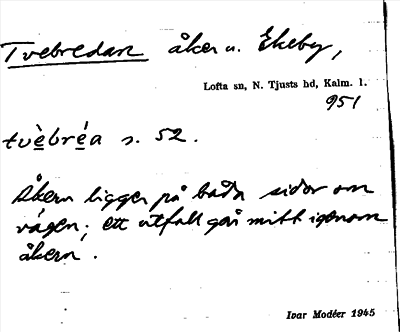 Tvebredan åker u. Ekeby,
Lofta sn, N. Tjusts hd, Kalm. l.
951
tvèbréa s. 52.
Åkern ligger på båda sidor om
vägen; ett utfall går mitt igenom
åkern.
Ivar Modéer 1945